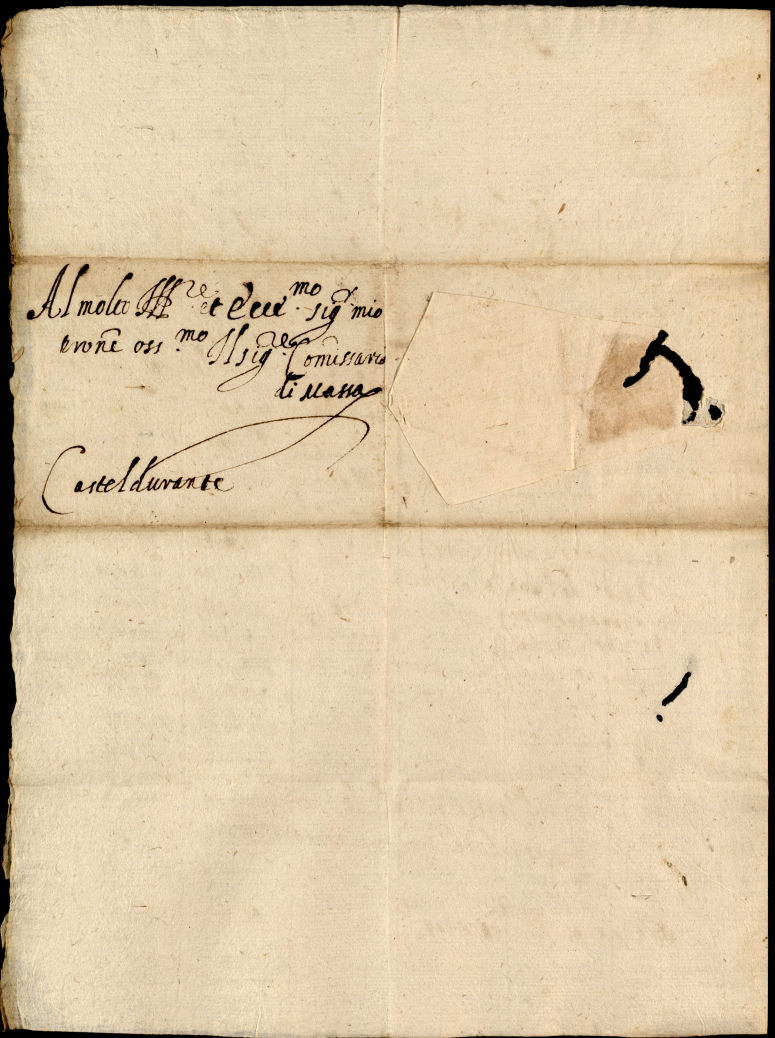 Al molto Ill.re et Ecc.mo sig.r mio
Prone oss.mo Il sig.re Comissario
di Massa
Casteldurante